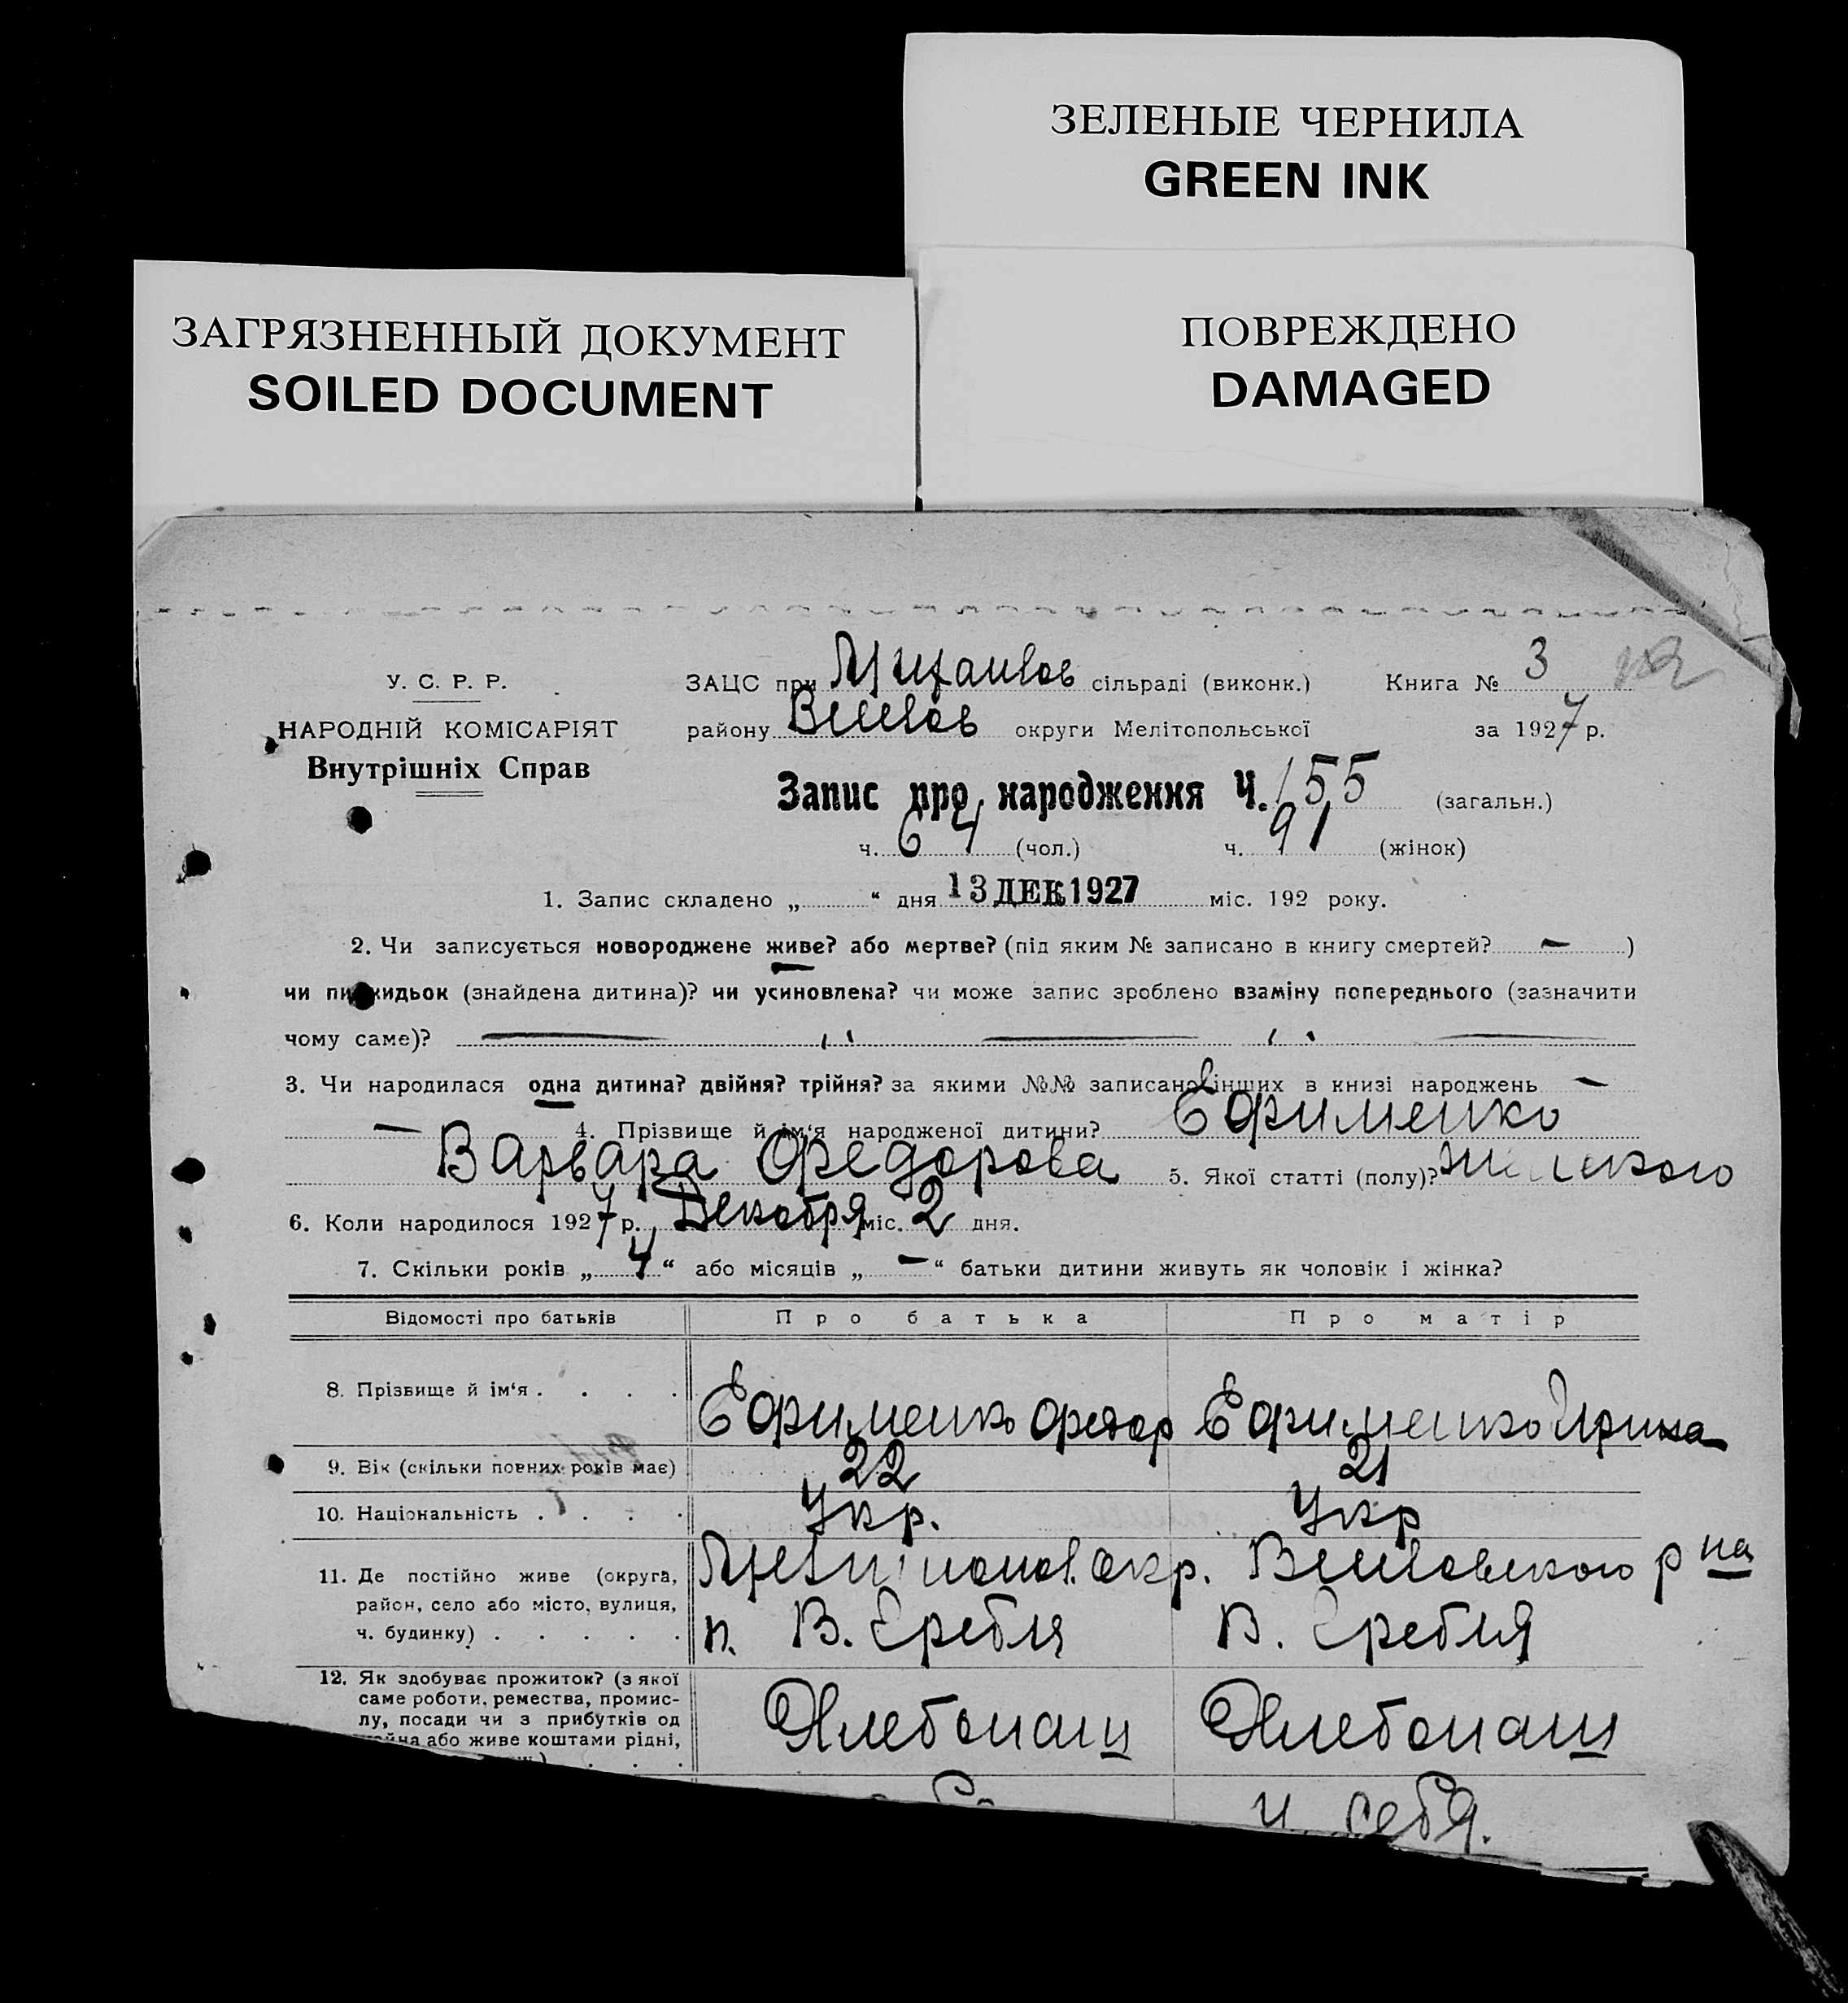 ЗЕЛЕНЫЕ ЧЕРНИЛА
GREEN INK
ЗАГРЯЗНЕННЫЙ ДОКУМЕНТ
SOILED DOCUMENT
ПОВРЕЖДЕНО
DAMAGED
У. С. Р. Р.
НАРОДНІЙ КОМІСАРІЯТ
Внутрішніх Справ
ЗАЦС при Михайлов сільраді (виконк.) Книга № 3
району Веселов округи Мелітопольської за 1927 р.
Запис про народження Ч. 155 (загальн.)
ч. 64 (чол.) ч. 91 (жінок)
1. Запис складено „ “ дня 13 ДЕК 1927 міс. 192 року.
2. Чи записується новороджене живе? або мертве? (під яким № записано в книгу смертей? — )
чи підкидьок (знайдена дитина)? чи усиновлена? чи може запис зроблено взаміну попереднього (зазначити
чому саме)? — „ — „ —
3. Чи народилася одна дитина? двійня? трійня? за якими №№ записано інших в книзі народжень —
— 4. Прізвище й ім‘я народженої дитини? Ефименко
Варвара Федорова 5. Якої статті (полу)? женского
6. Коли народилося 1927 р. Декабря міс. 2 дня.
7. Скільки років „ 4 “ або місяців „ — “ батьки дитини живуть як чоловік і жінка?
Відомості про батьків Про батька Про матір
8. Прізвище й ім‘я . . . . Ефименко Федор Ефименко Ирина
9. Вік (скільки повних років має) 22 21
10. Національність . . . . Укр. Укр
11. Де постійно живе (округа, район, село або місто, вулиця, ч. будинку) . . . . . Мелитопол. окр. Веселовского р на
п. В. Гребля В. Гребля
12. Як здобуває прожиток? (з якої
саме роботи, ремества, промис-
лу, посади чи з прибутків од
або живе коштами рідні,
Хлебопаш Хлебопаш
и себя.